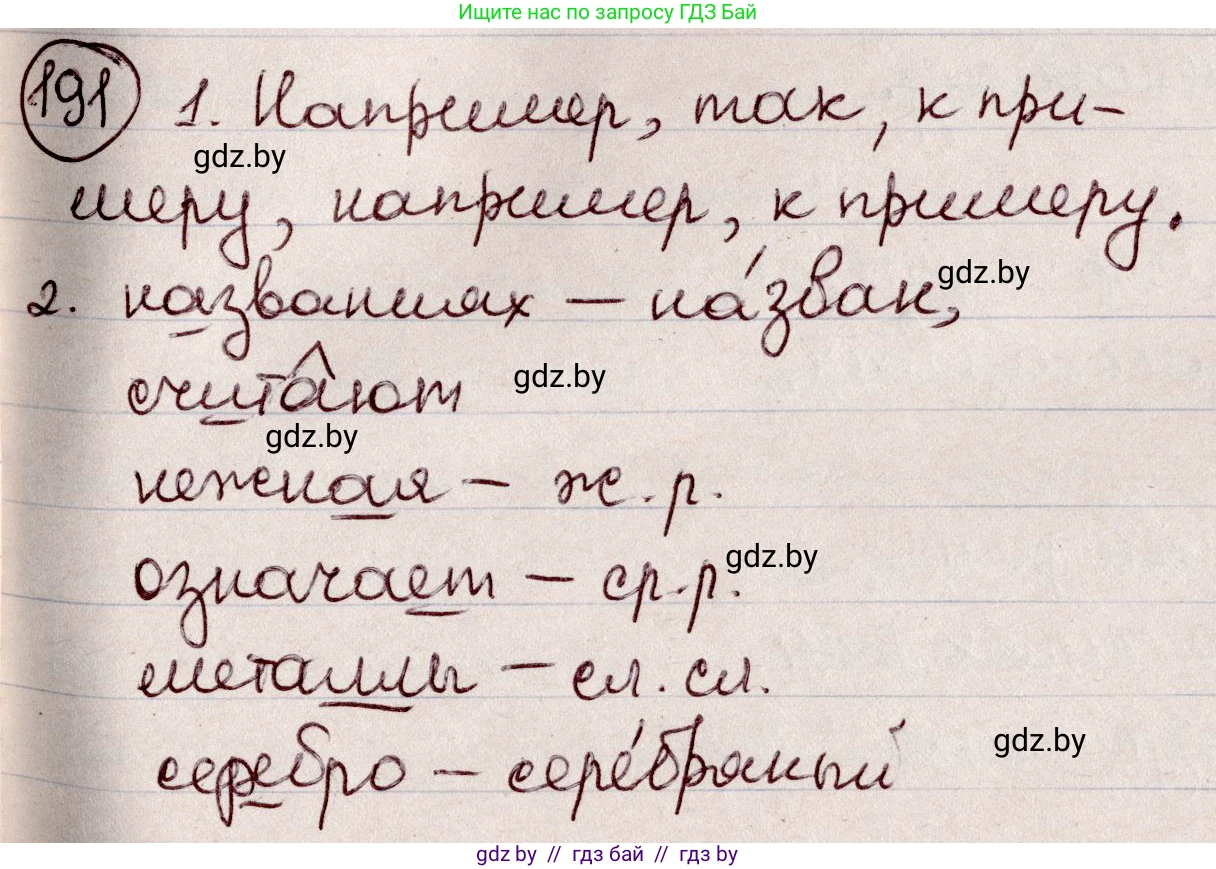 Ищите нас по запросу ГДЗ Бай
191 1. Например, так, к при-
gdz.by
меру, например, к примеру.
2. названиях – на́зван,
gdz.by
считают
gdz.by
gdz.by
нежная – ж.р.
означает – ср.р.
gdz.by
металлы – сл. сл.
серебро – сере́бряный
gdz.by
gdz.by // гдз бай // gdz.by